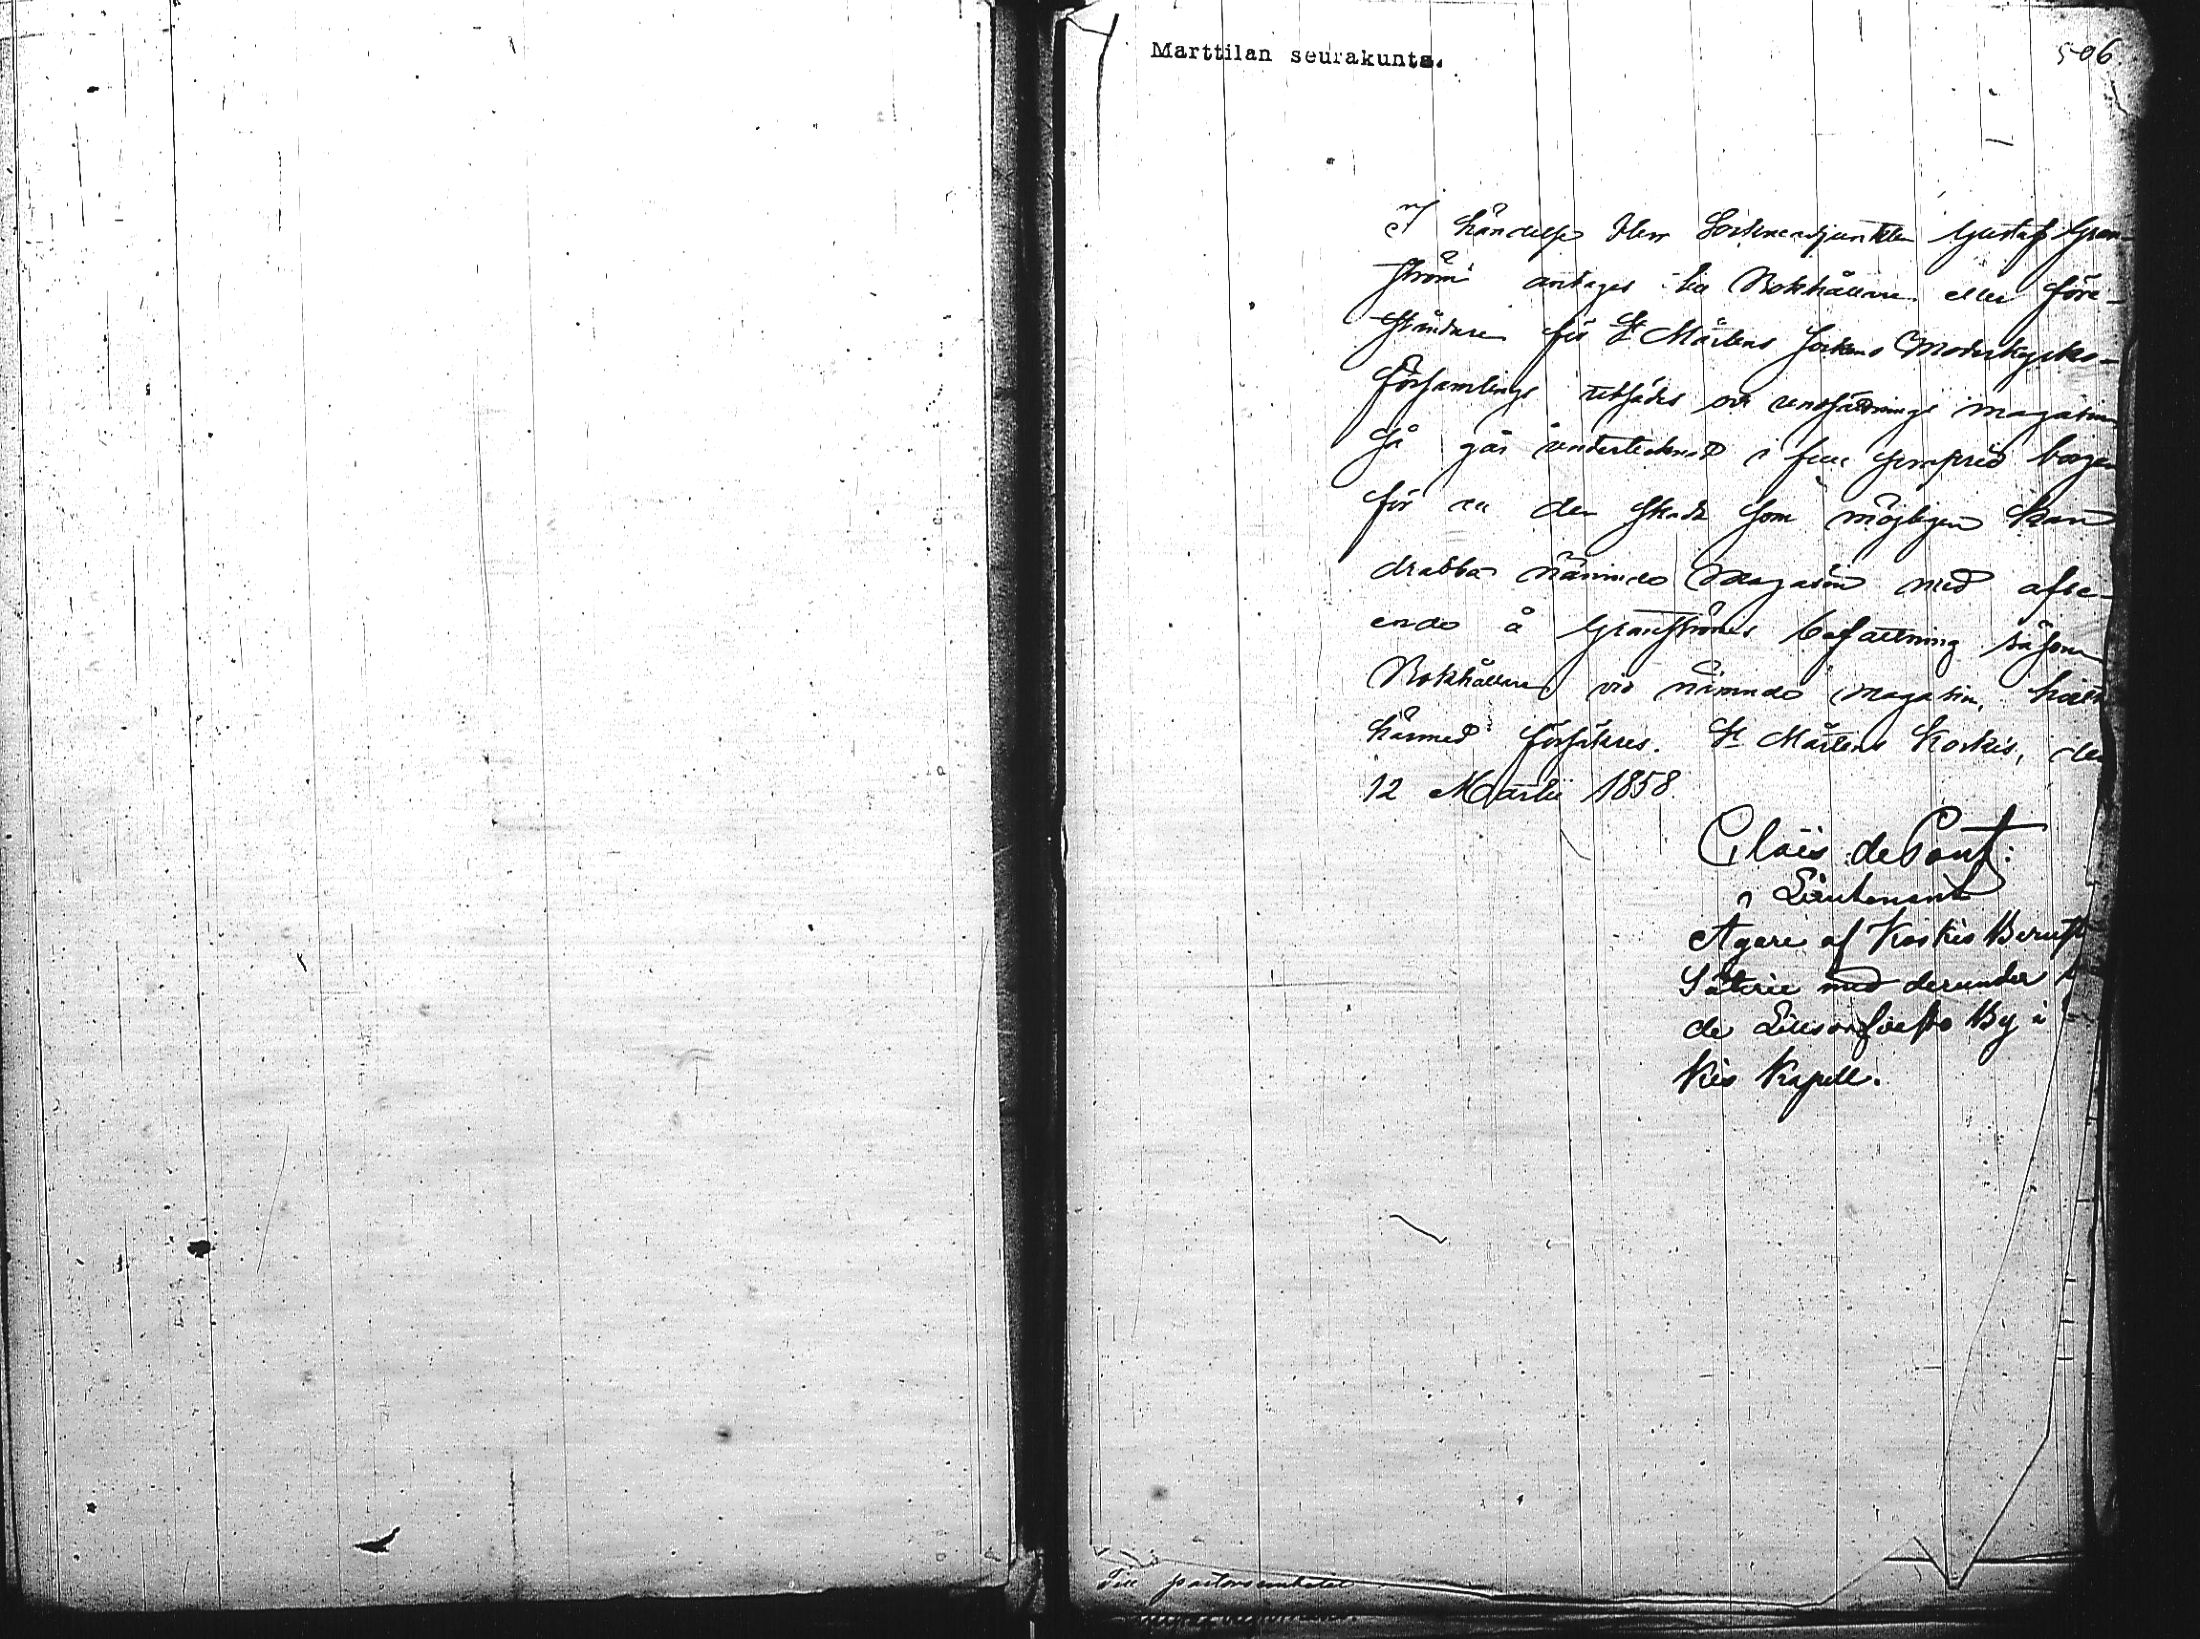 Marttilan seurakunta.
506.
I händelse Herr Sockneadjunkten Gustaf Gran-
ström antages till Bokhållare eller före-
ståndare för St Mårtens Sockens Moderkyrko-
församlings utsädes och undsättnings magasin
Så går undertecknad i full proprieborgen
för all den skada som möjligen kan
drabba nämnde Magasin med afse-
ende å Granströms befattning såsom
Bokhållare vid nämnde magasin,
härmed försäkres. St Mårtens Koskis, den
12 Martii 1858.
Claës de Pont:
Lieutenant
Ägare af Koskis Berust
Säterie med derunder
de Liesonsuo By i
kis Kapell.
Till pastorsembetet